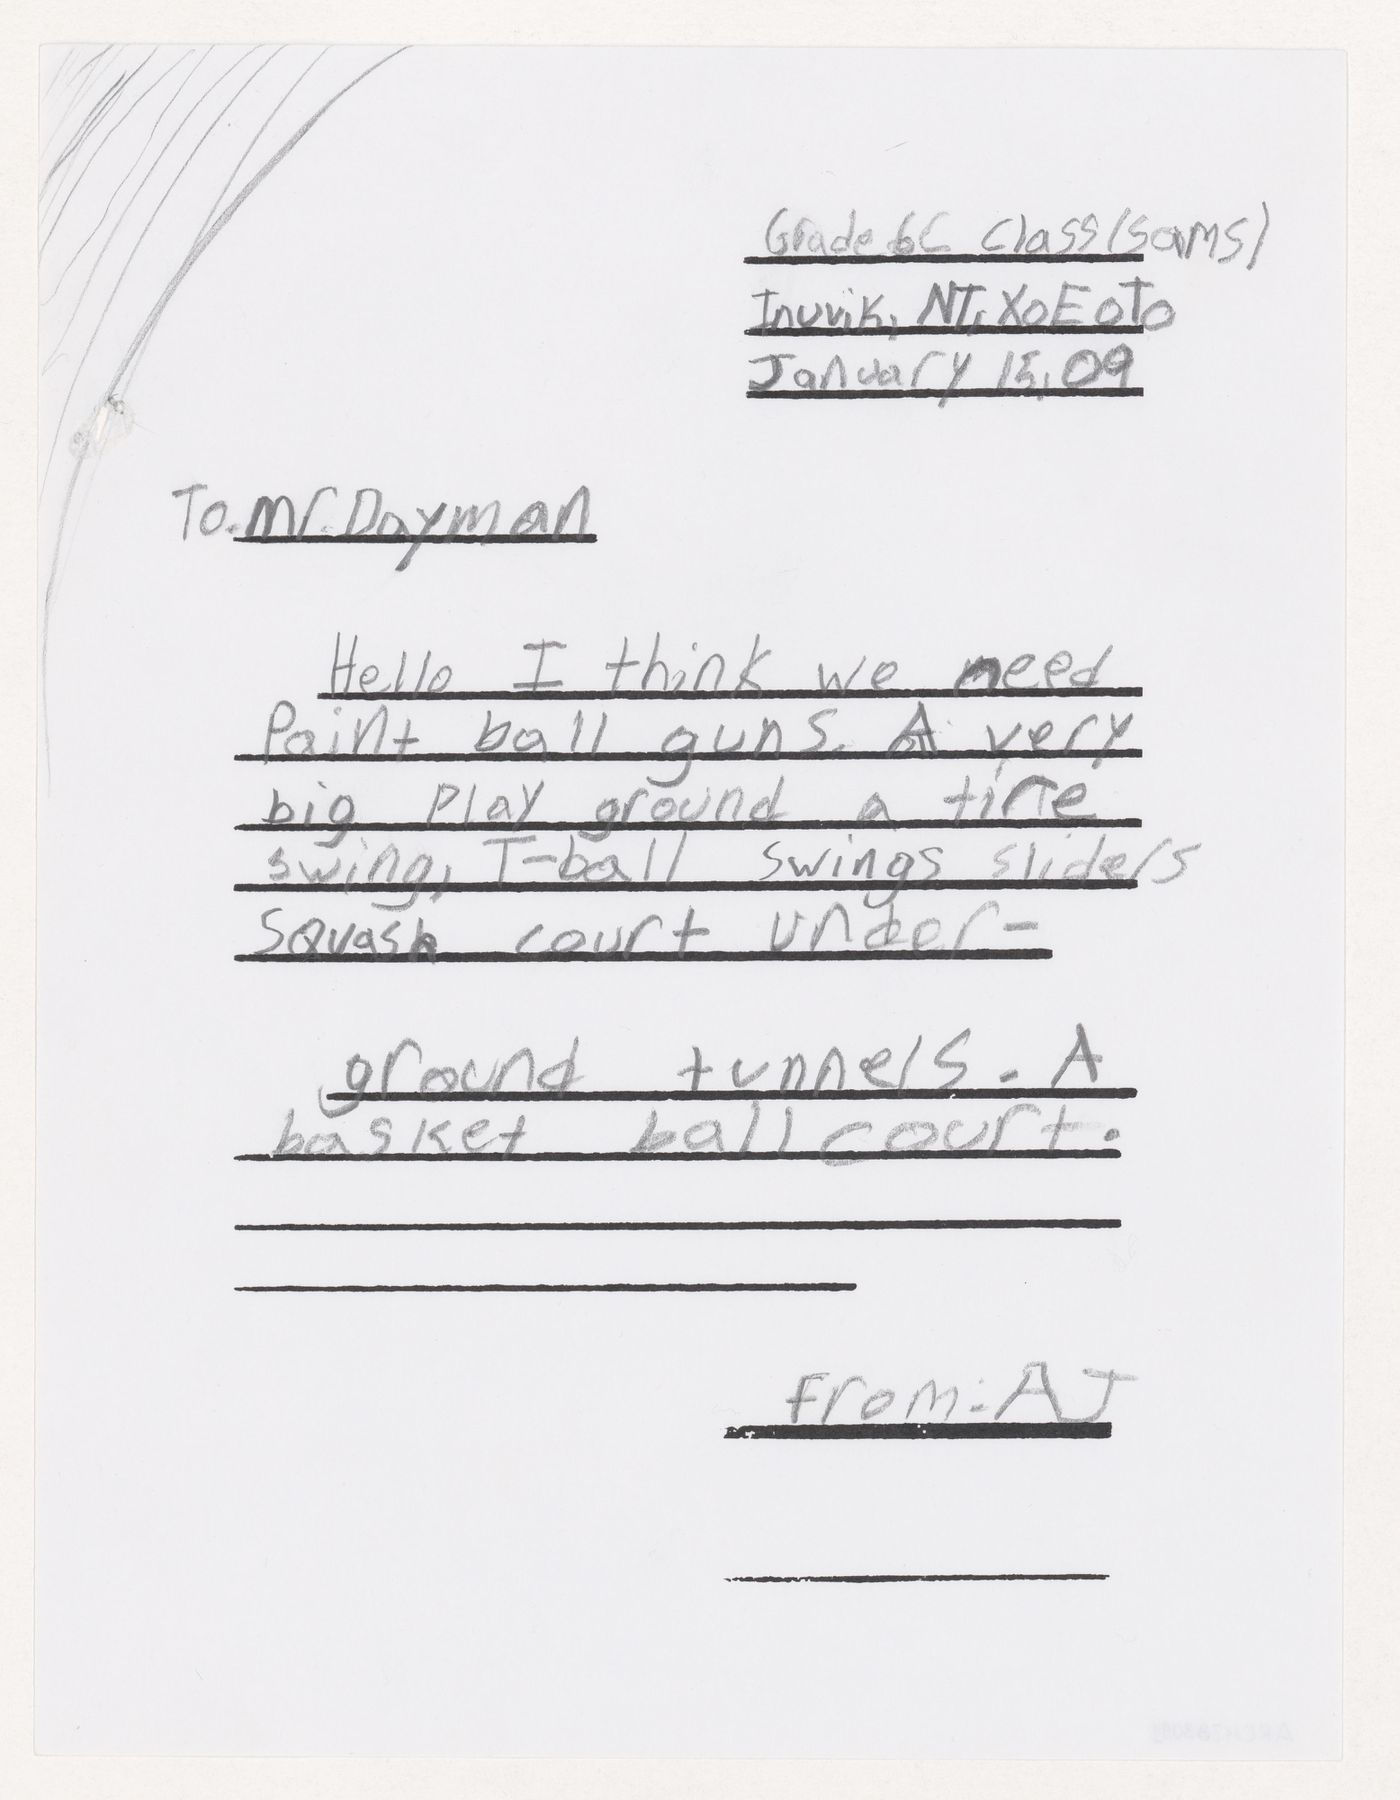 Grade 6C Class (Sams)
Inuvik, NT, XoEoTo
January 15, 09
To. Mr. Dayman
Hello I think we need
Paint ball guns. A very
big Play ground a tire
swing, T-ball swings sliders
Squash court under-
ground tunnels. A
basket ball court.
From: AJ